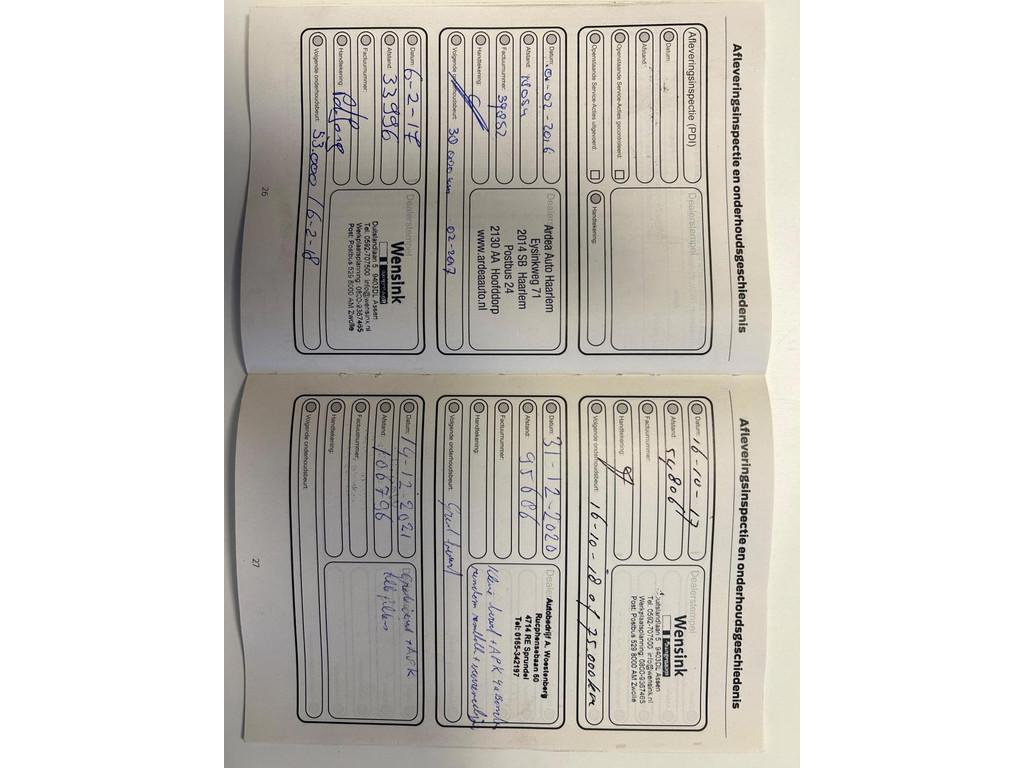 Afleveringsinspectie en onderhoudsgeschiedenis
Afleveringsinspectie (PDI)
Datum:
Afstand:
Openstaande Service-Acties gecontroleerd:
Openstaande Service-Acties uitgevoerd:
Dealerstempel
Handtekening:
Datum: 01-02-2016
Afstand:
Factuurnummer: 39852
Handtekening:
Volgende onderhoudsbeurt: 30 000 km 02-2017
Dealerstempel
Ardea Auto Haarlem
Eysinkweg 71
2014 SB Haarlem
Postbus 24
2130 AA Hoofddorp
www.ardeaauto.nl
Datum: 6-2-17
Afstand: 33996
Factuurnummer:
Handtekening:
Volgende onderhoudsbeurt: 53.000 / 6-2-18
Dealerstempel
Wensink
Duitslandlaan 5 9403DL Assen
Tel. 0592-707500 info@wensink.nl
Werkplaatsplanning: 0800-9367465
Post: Postbus 529 8000 AM Zwolle
26
Afleveringsinspectie en onderhoudsgeschiedenis
Datum: 16-10-17
Afstand: 54806
Factuurnummer:
Handtekening:
Volgende onderhoudsbeurt: 16-10-18 of 75.000 km
Dealerstempel
Wensink
Duitslandlaan 5 9403DL Assen
Tel. 0592-707500 info@wensink.nl
Werkplaatsplanning: 0800-9367465
Post: Postbus 529 8000 AM Zwolle
Datum: 31-12-2020
Afstand: 95686
Factuurnummer:
Handtekening:
Volgende onderhoudsbeurt: Grote beurt
Dealerstempel
Autobedrijf A. Woestenberg
Rucphensebaan 60
4714 RE Sprundel
Tel: 0165-342197
Kleine beurt + APK
Datum: 14-12-2021
Afstand: 106796
Factuurnummer:
Handtekening:
Volgende onderhoudsbeurt:
+ APK
27